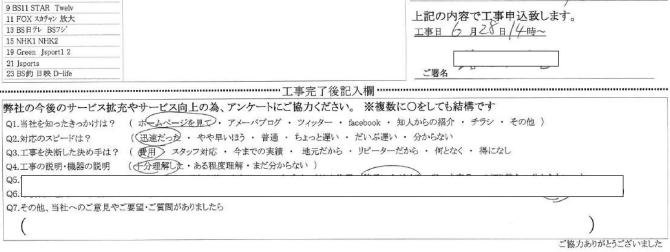 9 BS11 STAR Twelv
11 FOX スカチャン 放大
13 BS日テレ BSフジ
15 NHK1 NHK2
19 Green Jsport1 2
21 Jsports
23 BS釣 日映 D-life
上記の内容で工事申込致します。
工事日 6月28日14時~
ご署名
工事完了後記入欄
弊社の今後のサービス拡充やサービス向上の為、アンケートにご協力ください。 ※複数に○をしても結構です
Q1.当社を知ったきっかけは? ( ホームページを見て ・ アメーバブログ ・ ツイッター ・ facebook ・ 知人からの紹介 ・ チラシ ・ その他 )
Q2.対応のスピードは? ( 迅速だった ・ やや早いほう ・ 普通 ・ ちょっと遅い ・ だいぶ遅い ・ 分からない
Q3.工事を決断した決め手は? ( 費用 ・ スタッフ対応 ・ 今までの実績 ・ 地元だから ・ リピーターだから ・ 何となく ・ 得になし
Q4.工事の説明・機器の説明 ( 十分理解した ・ ある程度理解 ・ まだ分からない )
Q5.
Q6.
Q7.その他、当社へのご意見やご要望・ご質問がありましたら
( )
ご協力ありがとうございました